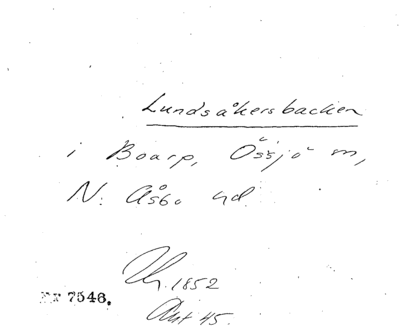 Lundsåkersbacken
i Boarp, Össjö m,
N. Åsbo hd
1852
7546.
Ant 45.